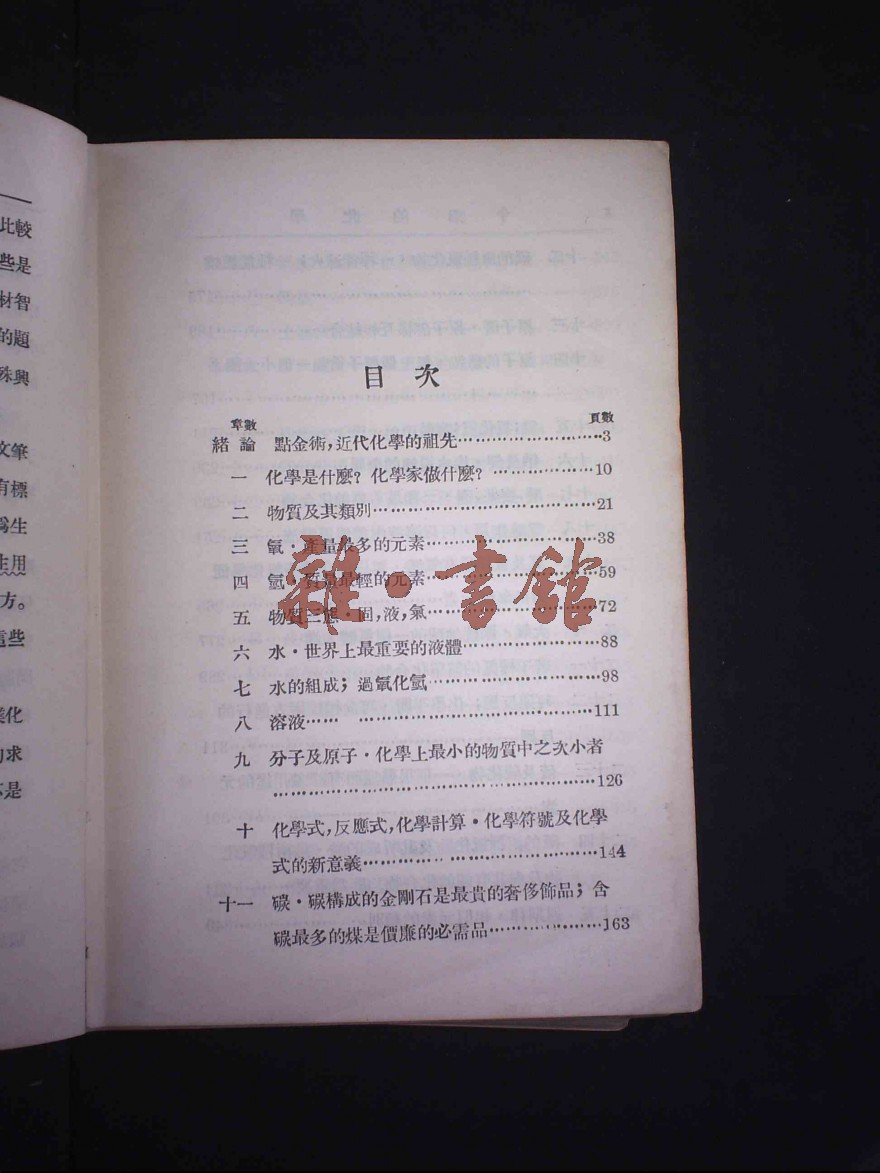 比較
些是
材智
的題
殊與
文筆
有標
爲生
生用
方。
這些
化
求
是
目次
章數 頁數
緒論 點金術,近代化學的祖先……………………3
一 化學是什麼?化學家做什麼?……………10
二 物質及其類別……………………………21
三 氧·產量最多的元素……………………38
四 氫·質量最輕的元素……………………59
五 物質三態·固,液,氣……………………72
六 水·世界上最重要的液體………………88
七 水的組成;過氧化氫……………………98
八 溶液…… ……………………………111
九 分子及原子·化學上最小的物質中之次小者
……………………………………………126
十 化學式,反應式,化學計算·化學符號及化學
式的新意義…………… ………………144
十一 碳·碳構成的金剛石是最貴的奢侈飾品;含
碳最多的煤是價廉的必需品………………163
雜·書館